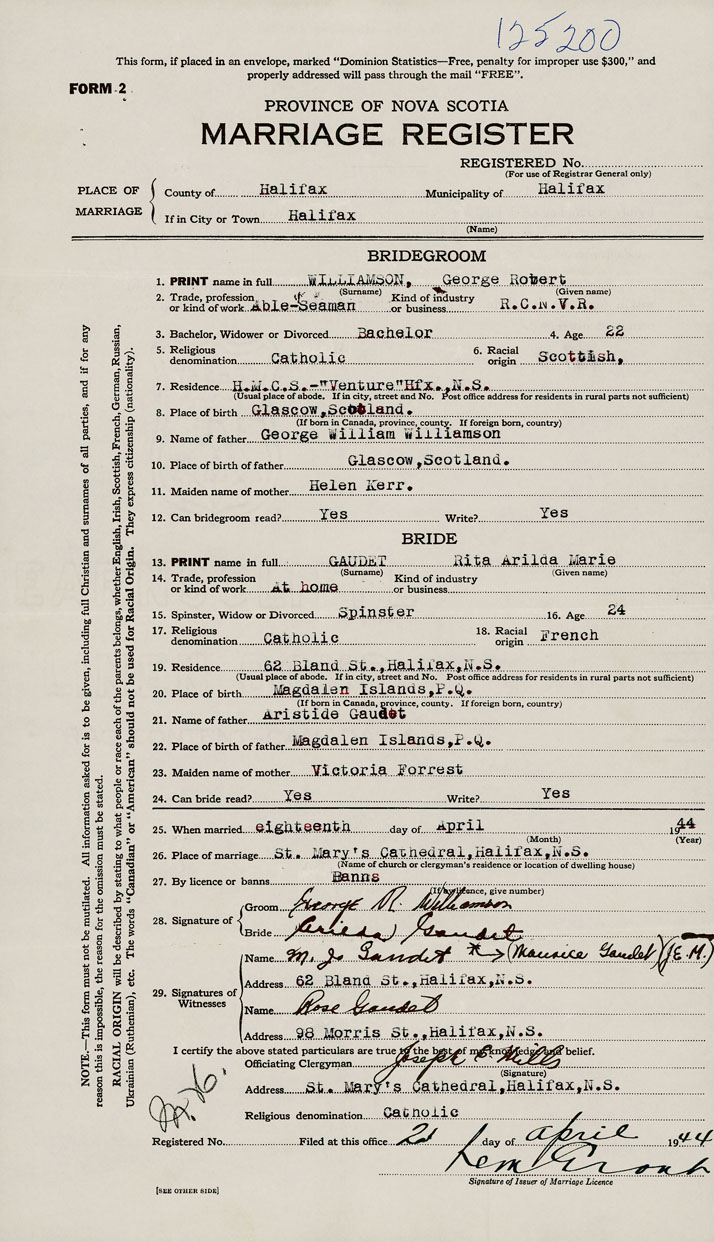 125200
This form, if placed in an envelope, marked "Dominion Statistics—Free, penalty for improper use $300," and
properly addressed will pass through the mail "FREE".
FORM 2
PROVINCE OF NOVA SCOTIA
MARRIAGE REGISTER
REGISTERED No.
(For use of Registrar General only)
PLACE OF MARRIAGE
County of Halifax Municipality of Halifax
If in City or Town Halifax
(Name)
BRIDEGROOM
1. PRINT name in full WILLIAMSON, George Robert
(Surname) (Given name)
2. Trade, profession or kind of work Able-Seaman Kind of industry or business R.C.N.V.R.
3. Bachelor, Widower or Divorced Bachelor 4. Age 22
5. Religious denomination Catholic 6. Racial origin Scottish,
7. Residence H.M.C.S.-"Venture"Hfx.,N.S.
(Usual place of abode. If in city, street and No. Post office address for residents in rural parts not sufficient)
8. Place of birth Glascow,Scotland.
(If born in Canada, province, county. If foreign born, country)
9. Name of father George William Williamson
10. Place of birth of father Glascow,Scotland.
11. Maiden name of mother Helen Kerr.
12. Can bridegroom read? Yes Write? Yes
BRIDE
13. PRINT name in full GAUDET Rita Arilda Marie
(Surname) (Given name)
14. Trade, profession or kind of work At home Kind of industry or business
15. Spinster, Widow or Divorced Spinster 16. Age 24
17. Religious denomination Catholic 18. Racial origin French
19. Residence 62 Bland St.,Halifax,N.S.
(Usual place of abode. If in city, street and No. Post office address for residents in rural parts not sufficient)
20. Place of birth Magdalen Islands,P.Q.
(If born in Canada, province, county. If foreign born, country)
21. Name of father Aristide Gaudet
22. Place of birth of father Magdalen Islands,P.Q.
23. Maiden name of mother Victoria Forrest
24. Can bride read? Yes Write? Yes
25. When married eighteenth day of April 1944
(Month) (Year)
26. Place of marriage St. Mary's Cathedral,Halifax,N.S.
(Name of church or clergyman's residence or location of dwelling house)
27. By licence or banns Banns
(If by licence, give number)
28. Signature of
Groom George R. Williamson
Bride Gaudet
29. Signatures of Witnesses
Name M. J. Gaudet * → (Maurice Gaudet) (J.E.M.)
Address 62 Bland St.,Halifax,N.S.
Name Rose Gaudet
Address 98 Morris St.,Halifax,N.S.
I certify the above stated particulars are true to the best of my knowledge and belief.
Officiating Clergyman Joseph E. Mills
(Signature)
Address St. Mary's Cathedral,Halifax,N.S.
Religious denomination Catholic
Registered No. Filed at this office 21 day of April 1944
Signature of Issuer of Marriage Licence
[SEE OTHER SIDE]
NOTE.—This form must not be mutilated. All information asked for is to be given, including full Christian and surnames of all parties, and if for any
reason this is impossible, the reason for the omission must be stated.
RACIAL ORIGIN will be described by stating to what people or race each of the parents belongs, whether English, Irish, Scottish, French, German, Russian,
Ukrainian (Ruthenian), etc. The words "Canadian" or "American" should not be used for Racial Origin. They express citizenship (nationality).